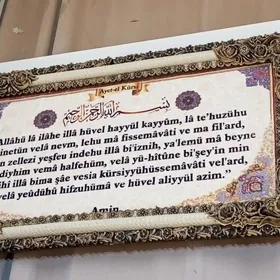 Ayet-el Kürsi
بِسْمِ اللهِ الرَّحْمٰنِ الرَّحِيمِ
Allâhü lâ ilâhe illâ hüvel hayyül kayyûm, lâ te'huzühu
sinetün velâ nevm, lehu mâ fissemâvâti ve ma fil'ard,
n zellezi yeşfeu indehu illâ bi'iznih, ya'lemü mâ beyne
diyhim vemâ halfehüm, velâ yü-hîtûne bi'şey'in min
ihi illâ bima şâe vesia kürsiyyühüssemâvâti vel'ard,
velâ yeûdühü hifzuhümâ ve hüvel aliyyül azim.”
Amin